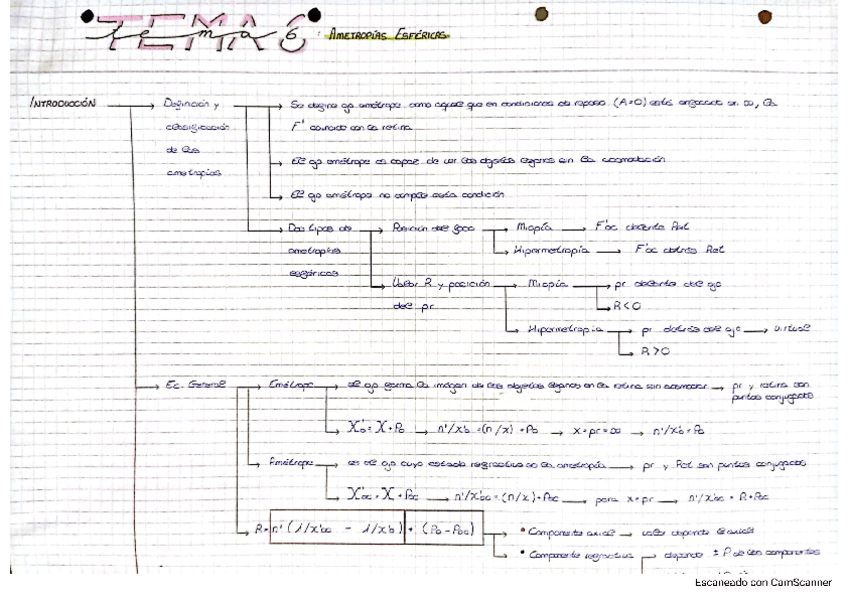 TEMA 6 : AMETROPÍAS ESFÉRICAS
tema
INTRODUCCIÓN → Definición y clasificación de las ametropías
Se define ojo emétrope como aquel que en condiciones de reposo (A=0) está enfocado en ∞, la
F' coincide con la retina
El ojo emétrope es capaz de ver los objetos lejanos sin la acomodación
El ojo amétrope no cumple esta condición
Dos tipos de ametropías esféricas
Posición del foco → Miopía → F'oc delante Ret
Hipermetropía → F'oc detrás Ret
Valor R y posición del pr → Miopía → pr delante del ojo
R<0
Hipermetropía → pr detrás del ojo → virtual
R>0
Ec. General → Emétrope → el ojo forma la imagen de los objetos lejanos en la retina sin acomodar → pr y retina son
puntos conjugados
X'o = X + Po → n'/x'o = (n/x) + Po → x=pr=∞ → n'/x'o = Po
Amétrope → es el ojo cuyo estado refractivo es la ametropía → pr y Ret son puntos conjugados
X'oc = X + Poc → n'/x'oc = (n/x) + Poc → para x=pr → n'/x'oc = R + Poc
R = n' (1/x'oc - 1/x'o) + (Po - Poc)
* Componente axial → valor
* Componente refractiva → depende P de los componentes
Escaneado con CamScanner